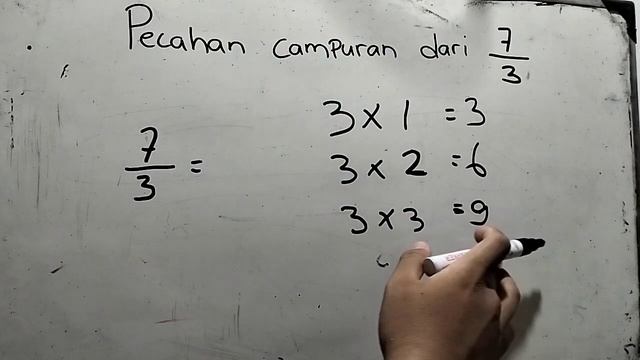 Pecahan campuran dari 7/3
7/3 =
3 x 1 = 3
3 x 2 = 6
3 x 3 = 9